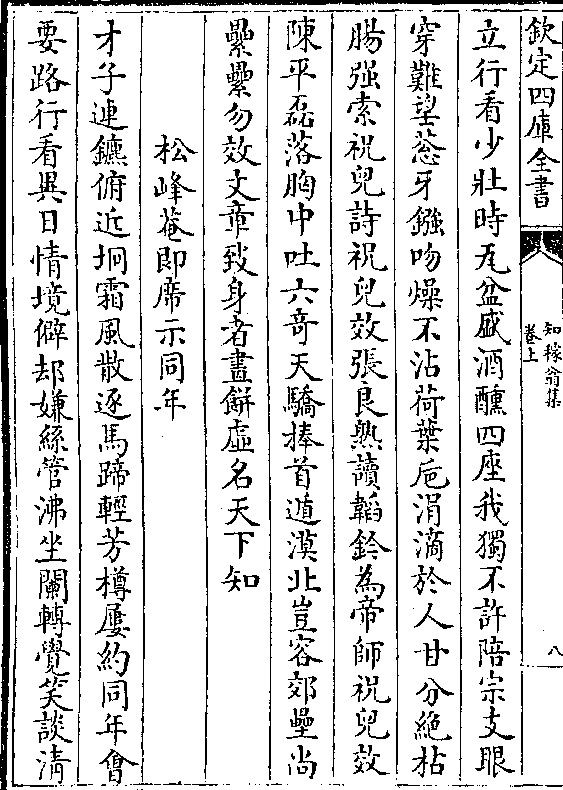 欽定四庫全書
知稼翁集
卷上
八
立行看少壯時瓦盆盛酒醺四座我獨不許陪宗支眼
穿難望蔥牙鏹吻燥不沾荷葉巵涓滴於人甘分絶枯
腸强索祝兒詩祝兒效張良熟讀韜鈐為帝師祝兒效
陳平磊落胸中吐六奇天驕捧首遁漠北豈容郊壘尚
纍纍勿效文章致身者畫餅虛名天下知
松峰菴即席示同年
才子連鑣俯近坰霜風散逐馬蹄輕芳樽屢約同年會
要路行看異日情境僻却嫌絲管沸坐闌轉覺笑談清